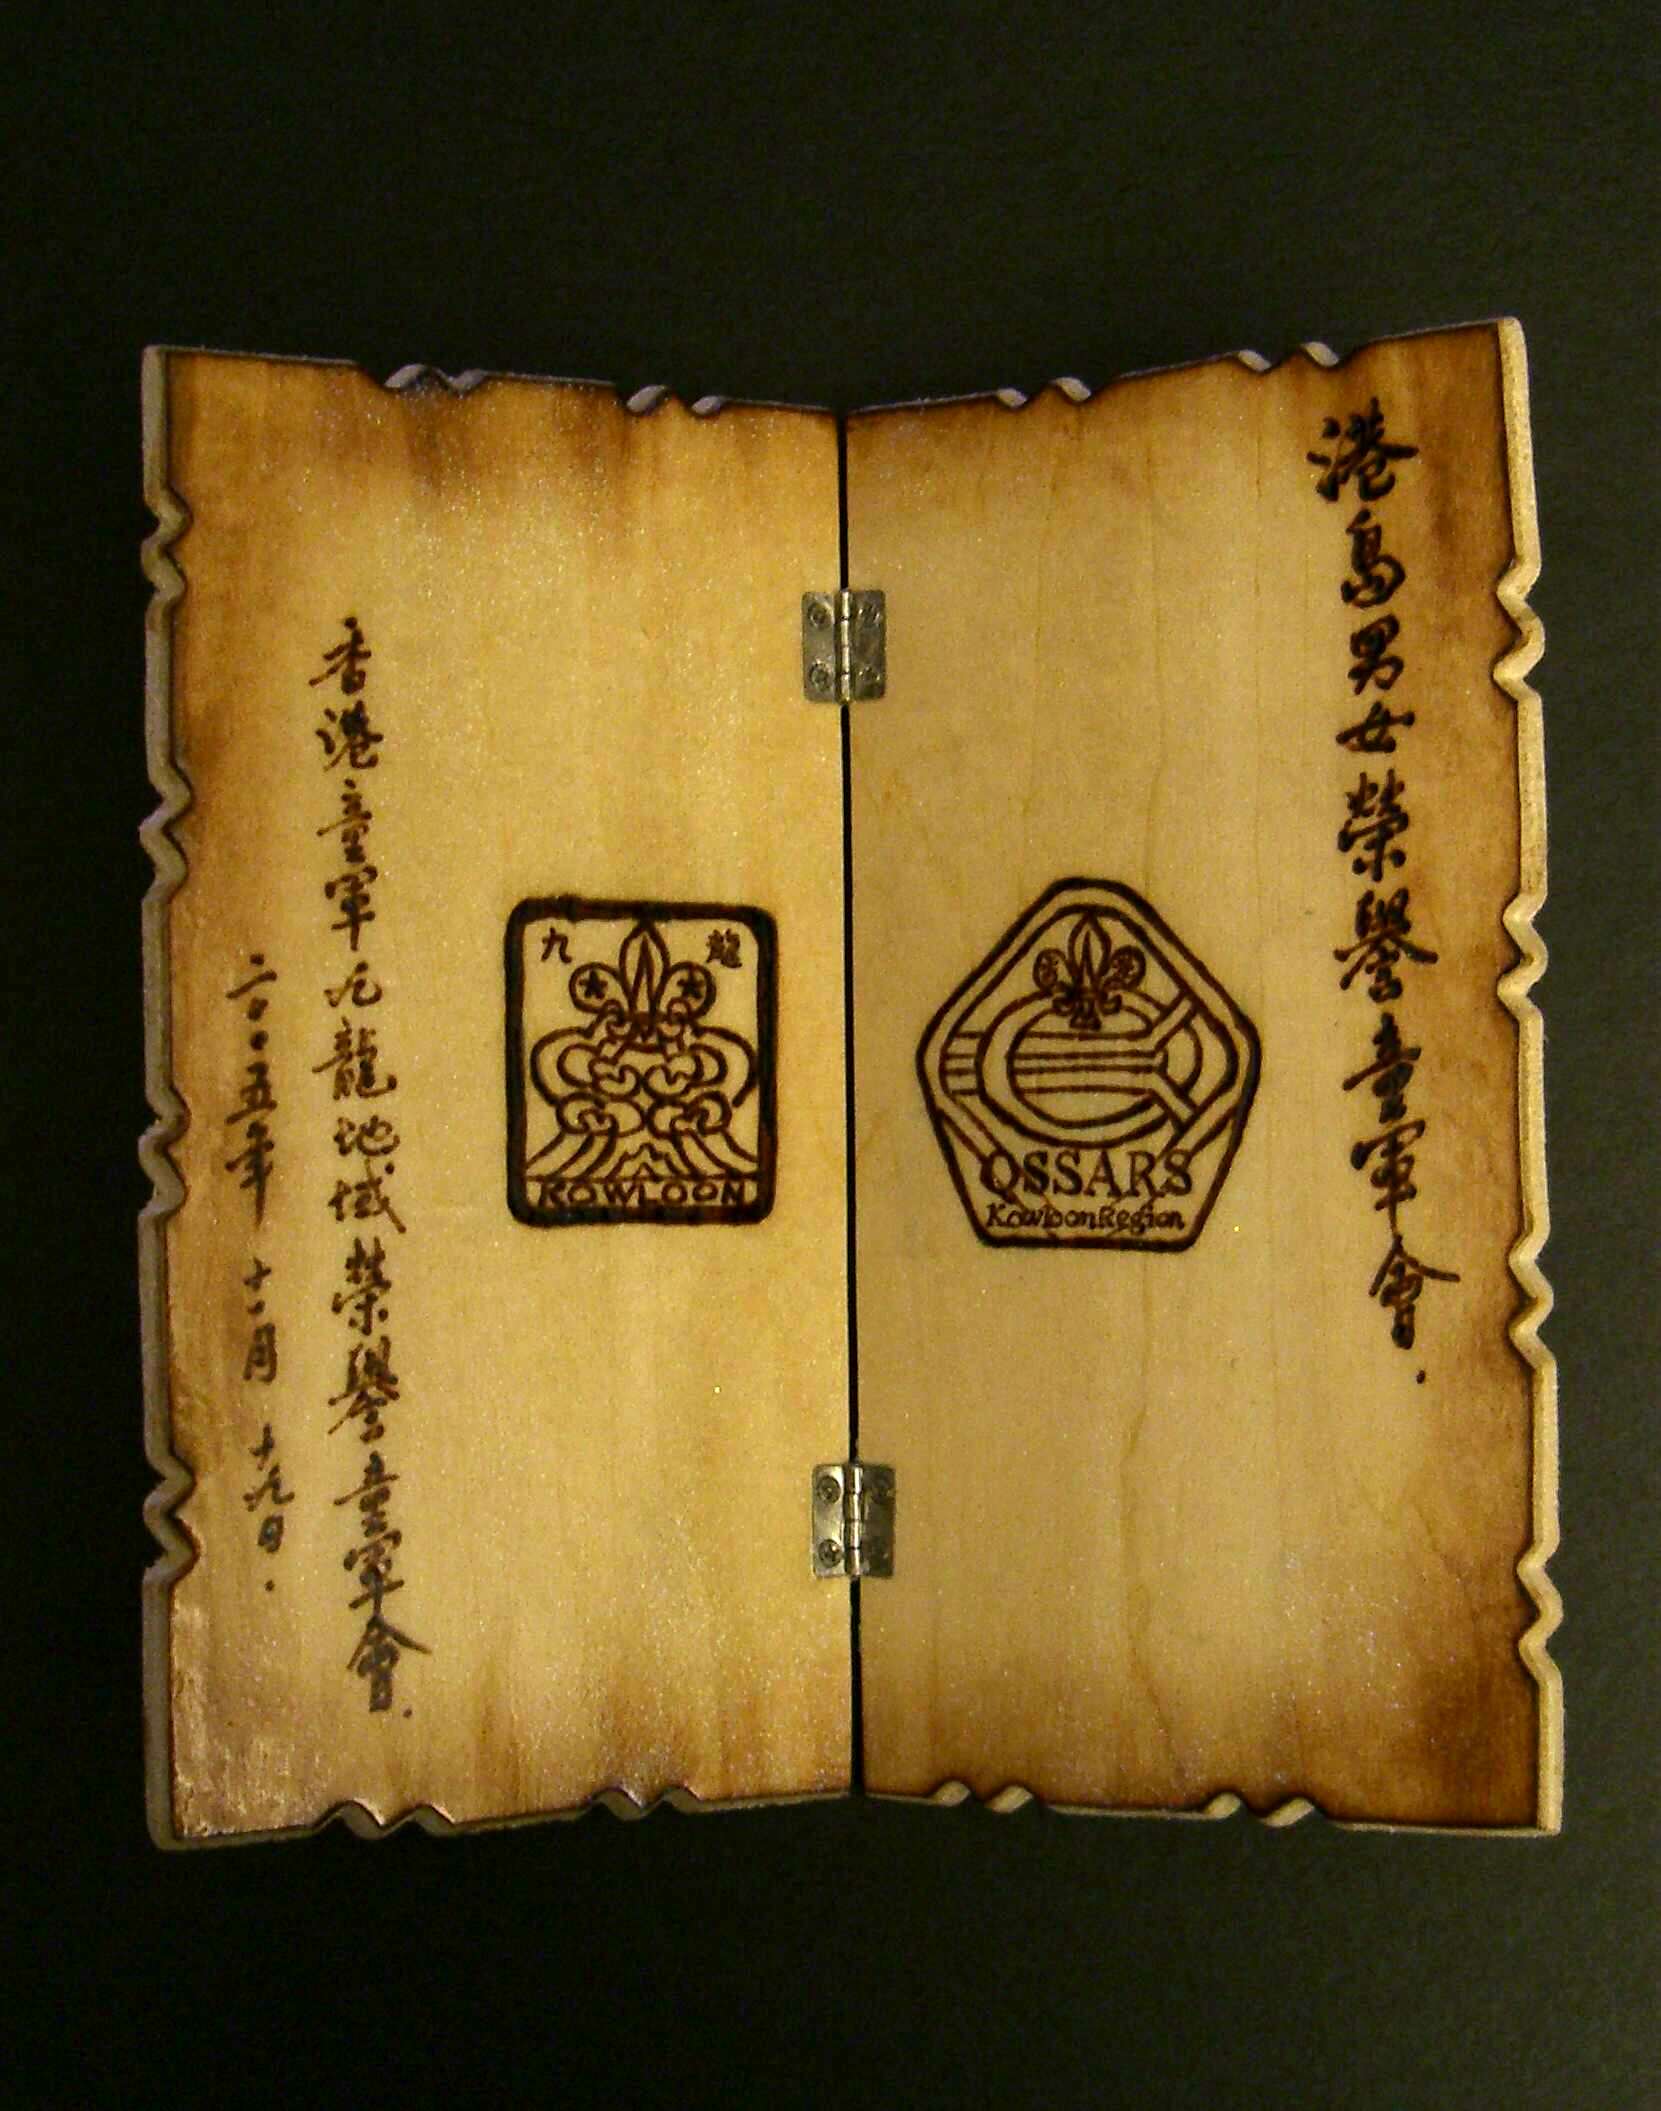 港島男女榮譽童軍會.
QSSARS
Kowloon Region
九 龍
KOWLOON
香港童軍九龍地域榮譽童軍會.
二〇〇五年十一月十九日.